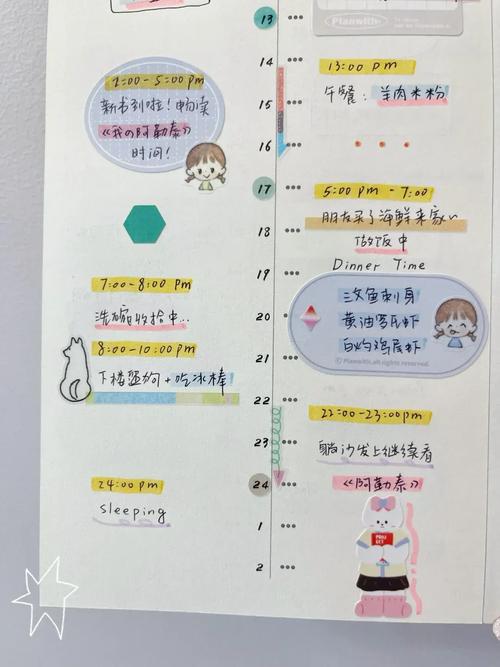 13
Planwith+
14
13:00 pm
2:00-5:00 pm
新书到啦！畅读
《我的阿勒泰》
时间！
15
午餐：羊肉米粉
16
17
5:00 pm - 7:00
朋友买了海鲜来家~
做饭中
18
19
Dinner Time
7:00-8:00 pm
洗碗收拾中..
20
三文鱼刺身
黄油罗氏虾
白灼鸡尾虾
©Planwith.all rights reserved
8:00-10:00 pm
下楼遛狗+吃冰棒！
21
22
22:00-23:00pm
躺沙发上继续看
《阿勒泰》
23
24
24:00 pm
sleeping
1
2